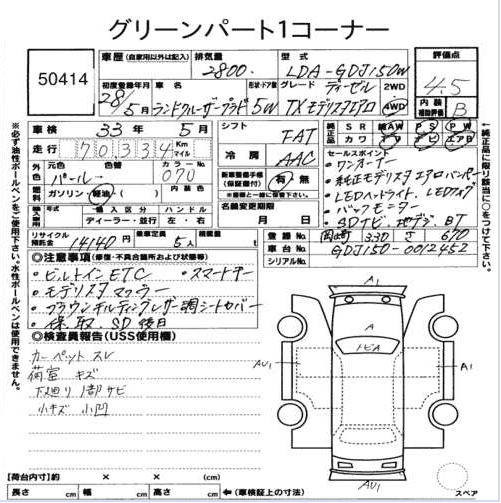 グリーンパート1コーナー
50414
車歴 (自家用以外は記入) 排気量 2800 型式 LDA-GDJ150W 評価点 4.5
初度登録年月 28/5月 車名 ランドクルーザープラド 形状・ドア数 5W グレード ディーゼル TX モデリスタエアロ 2WD 4WD 内装 補助評価 B
車検 33年 5月 シフト FAT 純正品 SR AW PS PW
走行 70,334 Km マイル カワ ナビ TV エアB
冷房 AAC セールスポイント
元色 パール 色替 カラーNo. 070 ・ワンオーナー
燃料 ガソリン・軽油・( ) 内装色 新車整備手帳(保証書付) 有・無 ・純正モデリスタエアロバンパー
・LEDヘッドライト、LEDフォグ
輸入車 輸入区分 ハンドル 名義変更期限 ・バックモニター
ディーラー・並行 左・右 月 日 ・SDナビ、地デジ、BT
リサイクル預託金 14140円 定員 5人 積載量 t 登録No. 330 670
車台No. GDJ150-0012452
シリアルNo.
◎注意事項 (修復・不具合箇所および状態等)
・ビルトインETC ・スマートキー
・モデリスタマフラー
・ブラウンキルティングレザー調シートカバー
・保、取、SD後日
◎検査員報告(USS使用欄)
カーペットスレ
荷室キズ
下廻り1部サビ
小キズ 小凹
A1
A
トビA
AU1
A1
AU1
スペア
【荷台内寸】約 × ×
長さ cm 幅 cm 高さ cm ←(車検証上の寸法)
※必ず油性ボールペンをご使用下さい。水性ボールペンは使用できません。
純正品に限り該当に○をつけて下さい